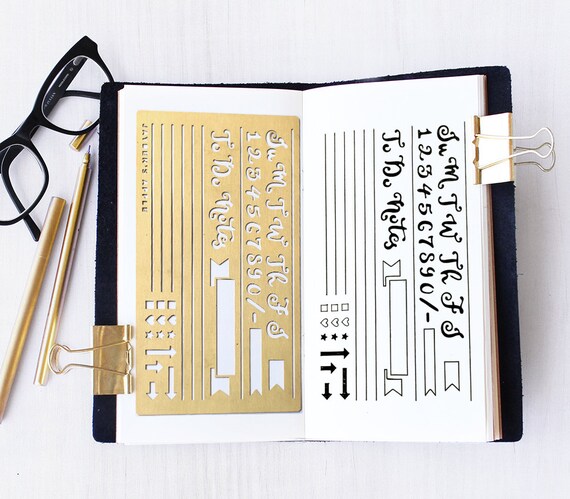 Su M T W Th F S
1234567890/-
To Do Notes
Su M T W Th F S
1234567890/-
To Do Notes